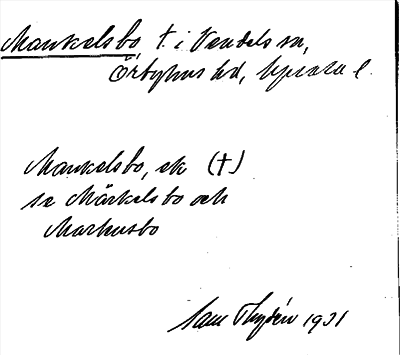 Mankelsbo † i Vendels sn,
Örbyhus hd, Uppsala l.
Mankelsbo, ek (†)
se Märkelsbo och
Markusbo
Sam Thydén 1931